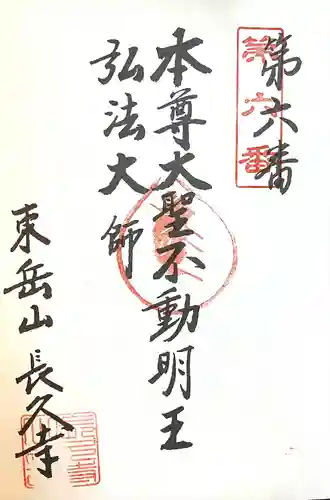 第六番
本尊大聖不動明王
弘法大師
東岳山長久寺
第六番